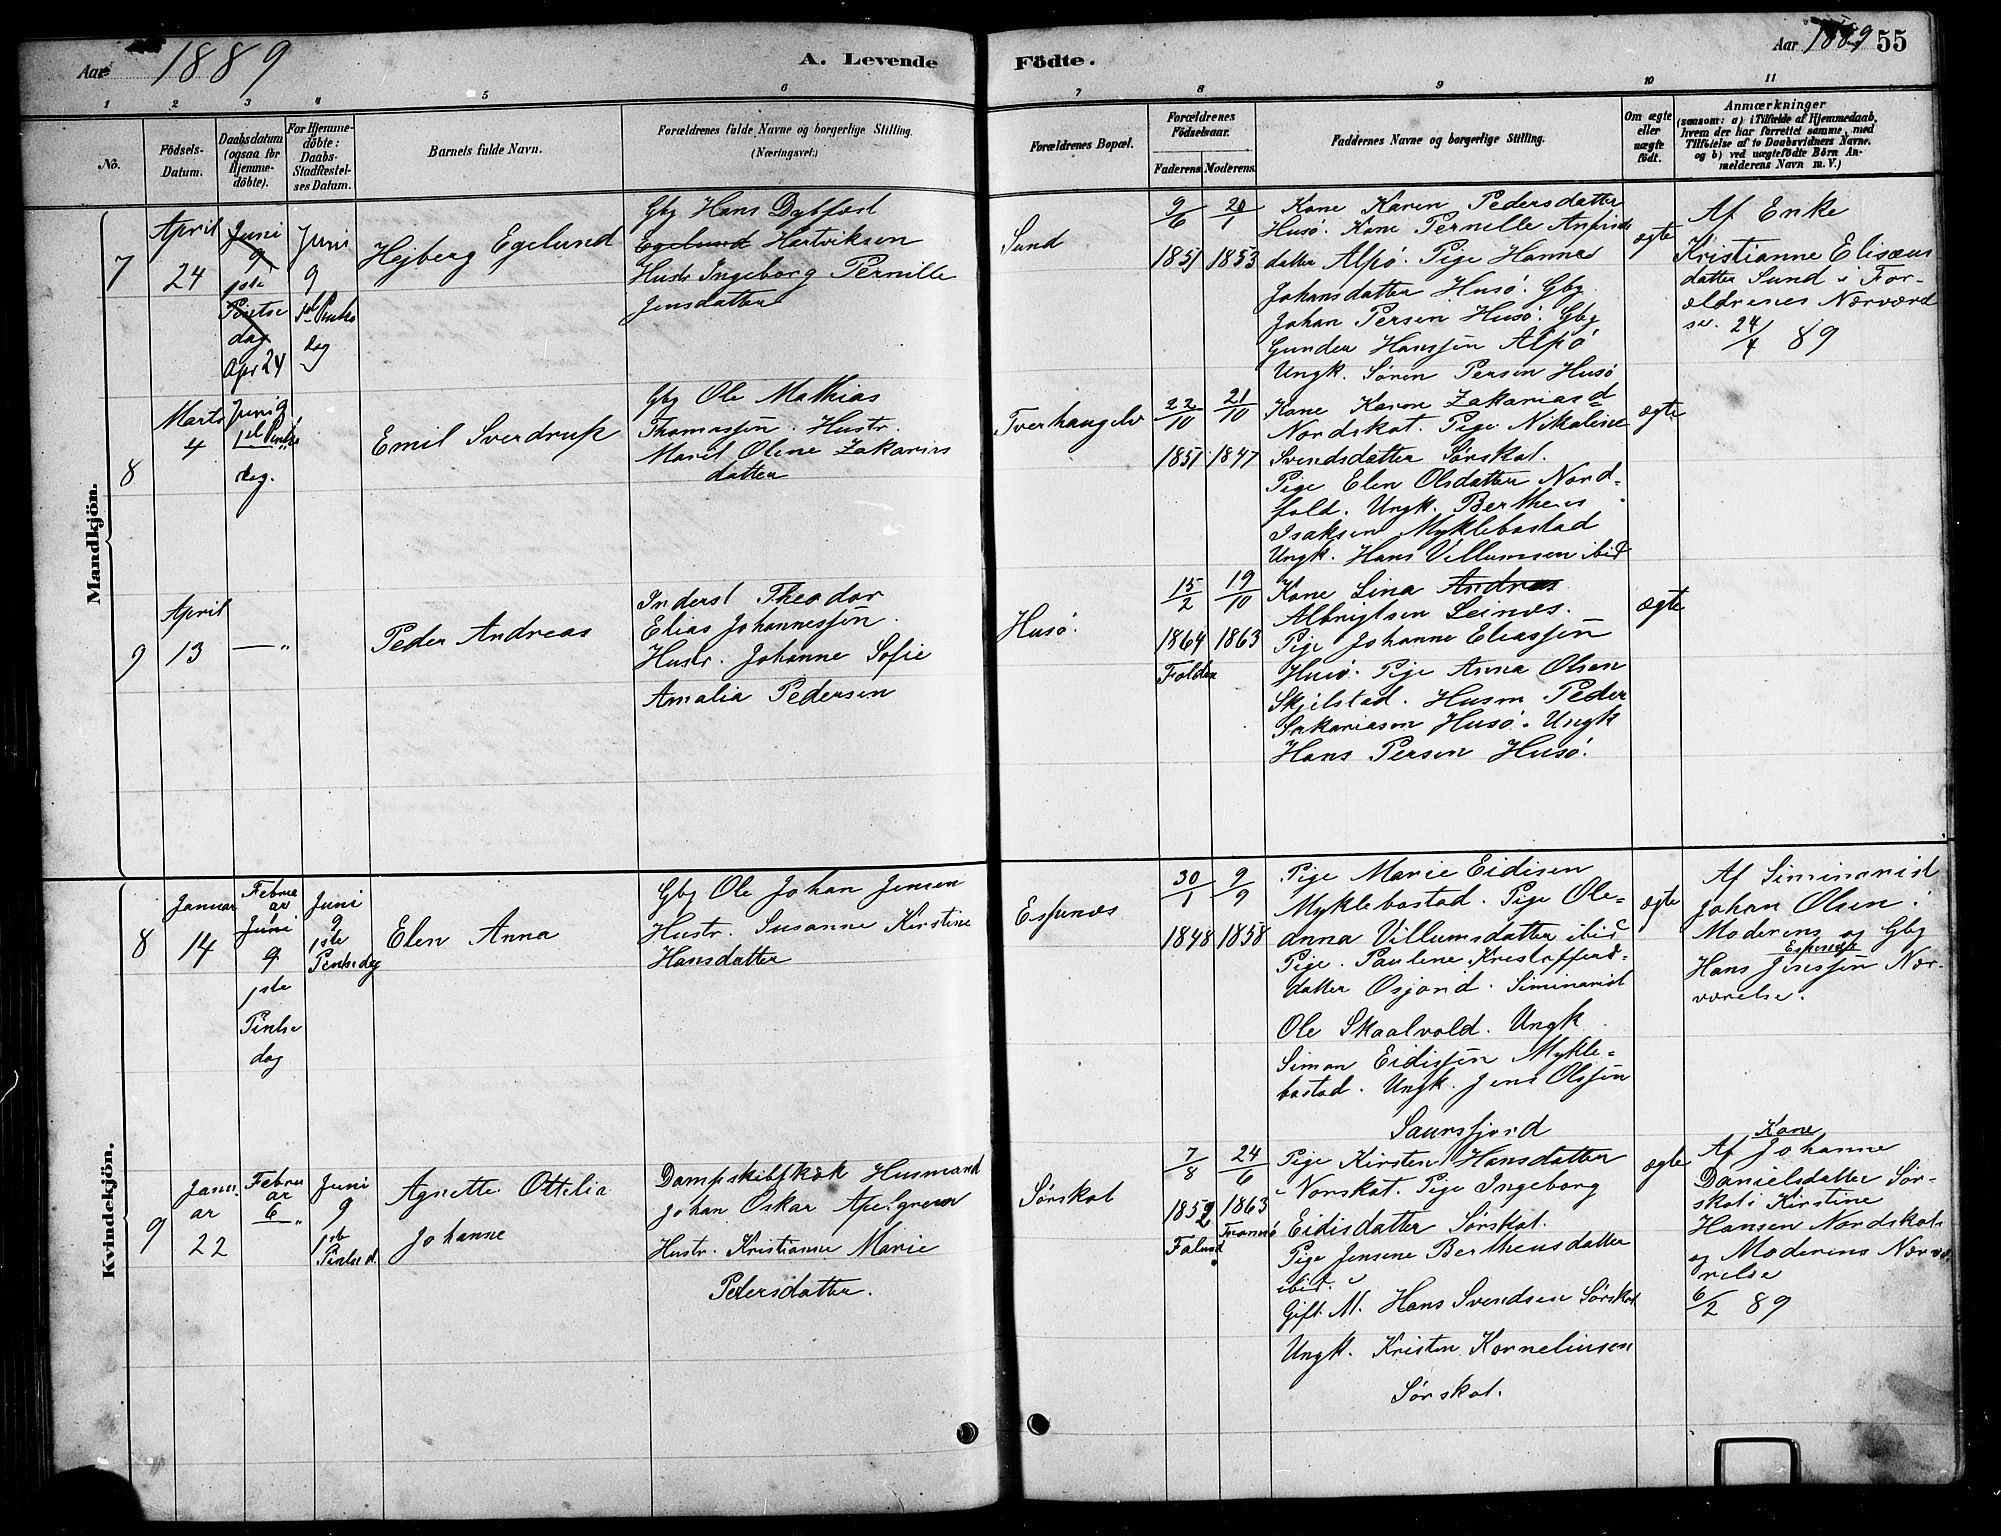 Aar 1889
A. Levende
Födte.
Aar 1889 55
1 2 3 4 5 6 7 8 9 10 11
Nô.
Födsels-
Datum.
Daabsdatum
(ogsaa for
Hjemme-
döbte).
For Hjemme-
döbte:
Daabs-
Stadfæstel-
ses Datum.
Barnets fulde Navn.
Forældrenes fulde Navne og borgerlige Stilling.
(Næringsvei.)
Forældrenes Bopæl.
Forældrenes
Födselsaar.
Faderens. Moderens.
Faddernes Navne og borgerlige Stilling.
Om ægte
eller
uægte
födt.
Anmærkninger
(saasom: a) i Tilfælde af Hjemmedaab,
hvem der har forrettet samme, med
Tilföielse af to Daabsvidners Navne,
og b) ved uægtefödte Börn An-
melderens Navn m. V.)
Mandkjön.
7
April
24
Juni
9
1ste
Pintse
dag
Apr 24
Juni
9
1ste Pintse
dag
Hejberg Egelund
Gbg Hans Dybfest
Egelund Hartviksen
Hustr Ingeborg Pernille
Jensdatter
Sund
9/6
1851
20/1
1853
Kone Karen Pedersdatter
Husö. Kone Pernelle
datter Alpö. Pige Hanna
Johansdatter Husö. Gbg
Johan Persen Husö. Gbg
Gunder Hanssen Alpö
Ungk. Sören Persen Husö
ægte
Af Enke
Kristianne Elisæus
datter Sund i For-
ældrenes Nærværel
se. 24/4 89
8
Marts
4
Juni 9
1ste Pintse
dag.
Emil Sverdrup
Gbg Ole Mathias
Thomassen. Hustr.
Maret Olene Zakarias
datter
Tverhaugelv
22/10
1851
21/10
1847
Kone Karen Zakariasd
Nordskot. Pige Nikoline
Svendsdatter Sörskot.
Pige Elen Olsdatter Nord-
fold. Ungk. Bertheus
Isaksen Myklebostad
Ungk. Hans Villumsen ibid
ægte
9
April
13
— "
Peder Andreas
Inderst Theodor
Elias Johannessen.
Hustr. Johanne Sofie
Amalia Pedersen
Husö.
15/2
1864
Folden
19/10
1863
Kone Lina Andreas
Albrigtsen Leines.
Pige Johanne Eliassen
Husö. Pige Anna Olsen
Skjelstad. Husm Peder
Sakariasen Husö. Ungk
Hans Persen Husö.
ægte
Kvindekjön.
8
Januar
14
Febru
ar
Juni
9
1ste
Pintse
dag
Juni
9
1ste
Pintsedag
Elen Anna
Gbg Ole Johan Jensen
Hustr. Susanne Kirstine
Hansdatter
Espenes
30/1
1848
9/9
1858
Pige Marie Eidisen
Myklebostad. Pige Ole-
anna Villumsdatter ibid
Pige. Pauline Kristoffers-
datter Osjord. Siminarist
Ole Skaalvold. Ungk
Simon Eidissen Mykle-
bostad. Ungk. Jens Olssen
Saursfjord
ægte
Af Siminarist
Johan Olsen i
Moderens og Gbg
Espenes
Hans Jenssen Nær-
værelse.
9
Janu
ar
22
Febru
ar
6 "
Juni
9
1ste
Pintsed
Agnette Ottelia
Johanne
Dampskibskok Husmand
Johan Oskar Apelgreen
Hustr. Kristianne Marie
Petersdatter.
Sörskot
7/8
1852
Falund
24/6
1863
Tromsö
Pige Kirsten Hansdatter
Norskot. Pige Ingeborg
Eidisdatter Sörskot.
Pige Jensene Bertheusdatter
ibid.
Gift M. Hans Svendsen Sörskot
Ungk. Kristen Kornelinsen
Sörskot.
ægte
Kone
Af Johanne
Danielsdatter Sör-
skot i Kirstine
Hansen Nordskots
og Moderens Nærvæ
relse
6/2 89